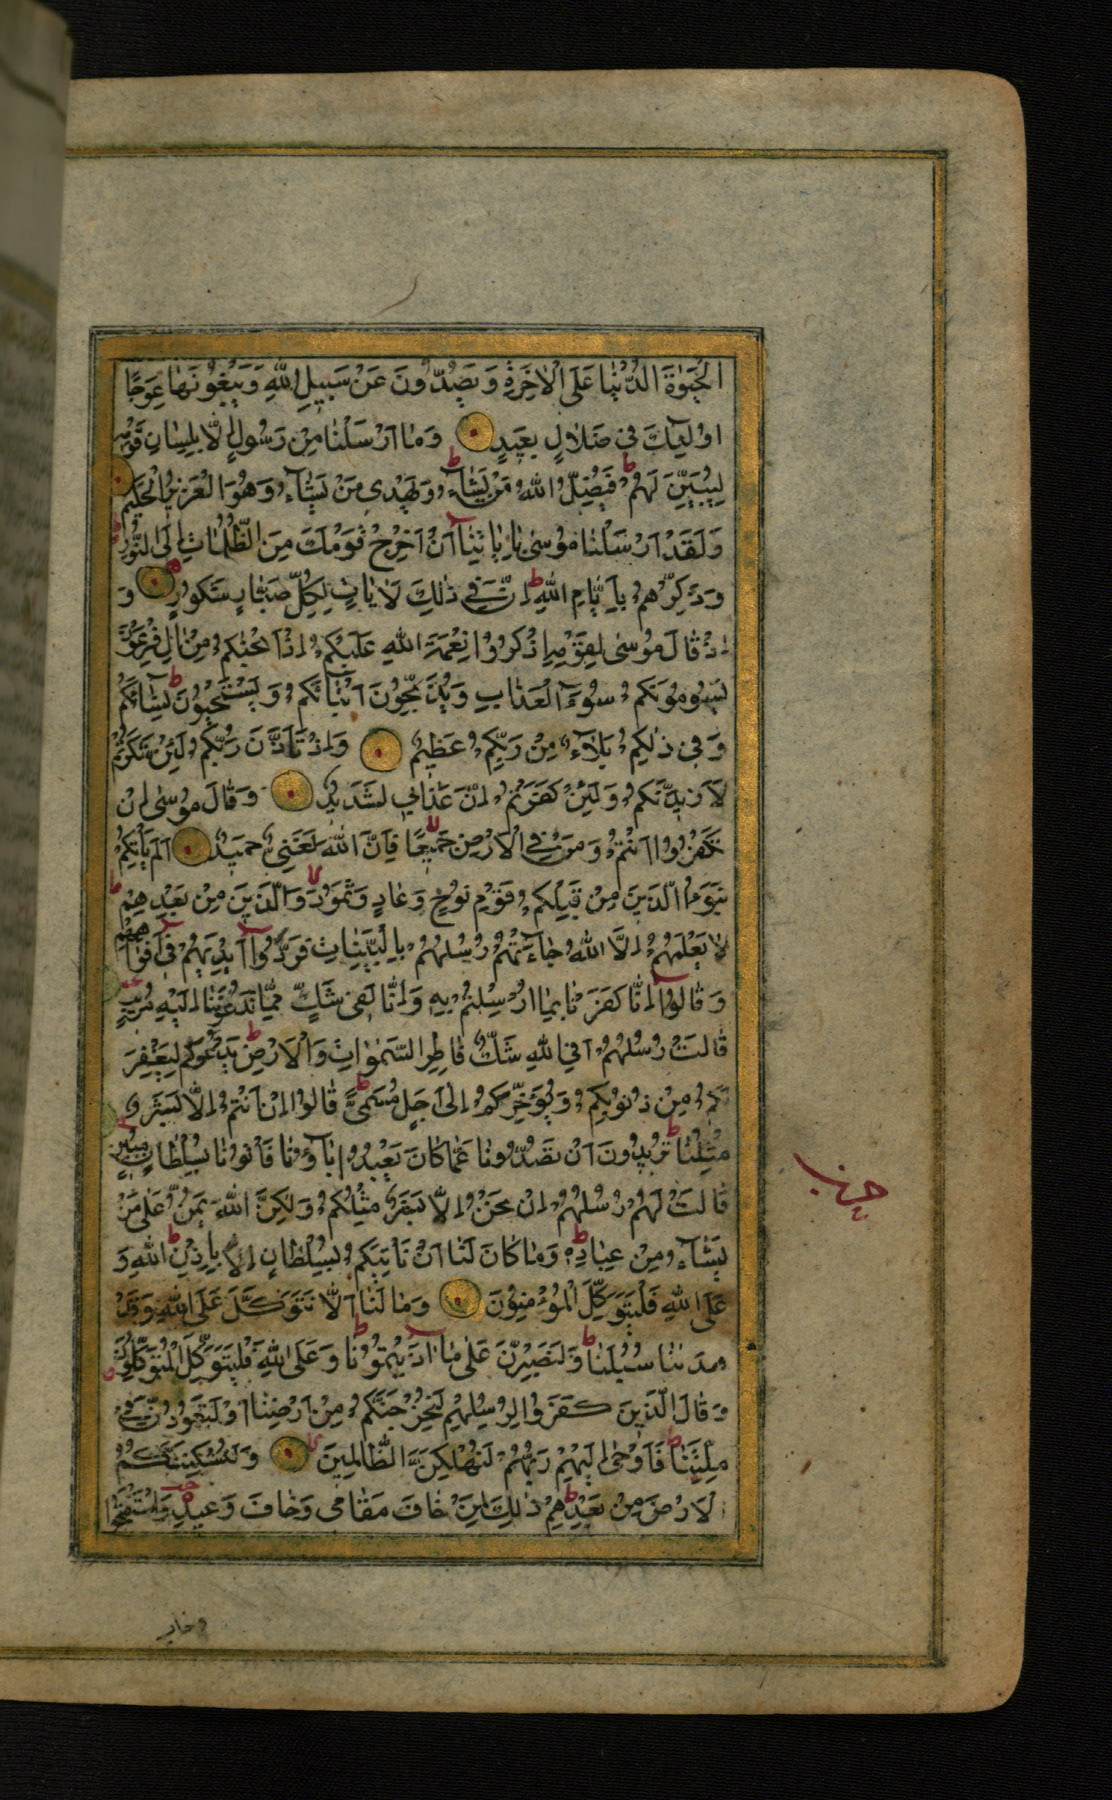 الْحَيٰوةَ الدُّنْيَا عَلَى الْاٰخِرَةِ وَيَصُدُّونَ عَنْ سَبِيلِ اللّٰهِ وَيَبْغُونَهَا عِوَجًا
اُولٰئِكَ فِي ضَلَالٍ بَعِيدٍ وَمَا اَرْسَلْنَا مِنْ رَسُولٍ اِلَّا بِلِسَانِ قَوْمِهِ
لِيُبَيِّنَ لَهُمْ فَيُضِلُّ اللّٰهُ مَنْ يَشَاءُ وَيَهْدِي مَنْ يَشَاءُ وَهُوَ الْعَزِيزُ الْحَكِيمُ
وَلَقَدْ اَرْسَلْنَا مُوسٰى بِاٰيَاتِنَا اَنْ اَخْرِجْ قَوْمَكَ مِنَ الظُّلُمَاتِ اِلَى النُّورِ
وَذَكِّرْهُمْ بِاَيَّامِ اللّٰهِ اِنَّ فِي ذٰلِكَ لَاٰيَاتٍ لِكُلِّ صَبَّارٍ شَكُورٍ وَ
اِذْ قَالَ مُوسٰى لِقَوْمِهِ اذْكُرُوا نِعْمَةَ اللّٰهِ عَلَيْكُمْ اِذْ اَنْجٰيكُمْ مِنْ اٰلِ فِرْعَوْنَ
يَسُومُونَكُمْ سُوءَ الْعَذَابِ وَيُذَبِّحُونَ اَبْنَاءَكُمْ وَيَسْتَحْيُونَ نِسَاءَكُمْ
وَفِي ذٰلِكُمْ بَلَاءٌ مِنْ رَبِّكُمْ عَظِيمٌ وَاِذْ تَاَذَّنَ رَبُّكُمْ لَئِنْ شَكَرْتُمْ
لَاَزِيدَنَّكُمْ وَلَئِنْ كَفَرْتُمْ اِنَّ عَذَابِي لَشَدِيدٌ وَقَالَ مُوسٰى اِنْ
تَكْفُرُوا اَنْتُمْ وَمَنْ فِي الْاَرْضِ جَمِيعًا فَاِنَّ اللّٰهَ لَغَنِيٌّ حَمِيدٌ اَلَمْ يَاْتِكُمْ
نَبَؤُا الَّذِينَ مِنْ قَبْلِكُمْ قَوْمِ نُوحٍ وَعَادٍ وَثَمُودَ وَالَّذِينَ مِنْ بَعْدِهِمْ
لَا يَعْلَمُهُمْ اِلَّا اللّٰهُ جَاءَتْهُمْ رُسُلُهُمْ بِالْبَيِّنَاتِ فَرَدُّوا اَيْدِيَهُمْ فِي اَفْوَاهِهِمْ
وَقَالُوا اِنَّا كَفَرْنَا بِمَا اُرْسِلْتُمْ بِهِ وَاِنَّا لَفِي شَكٍّ مِمَّا تَدْعُونَنَا اِلَيْهِ مُرِيبٍ
قَالَتْ رُسُلُهُمْ اَفِي اللّٰهِ شَكٌّ فَاطِرِ السَّمٰوَاتِ وَالْاَرْضِ يَدْعُوكُمْ لِيَغْفِرَ
لَكُمْ مِنْ ذُنُوبِكُمْ وَيُؤَخِّرَكُمْ اِلٰى اَجَلٍ مُسَمًّى قَالُوا اِنْ اَنْتُمْ اِلَّا بَشَرٌ
مِثْلُنَا تُرِيدُونَ اَنْ تَصُدُّونَا عَمَّا كَانَ يَعْبُدُ اٰبَاؤُنَا فَاْتُونَا بِسُلْطَانٍ مُبِينٍ
قَالَتْ لَهُمْ رُسُلُهُمْ اِنْ نَحْنُ اِلَّا بَشَرٌ مِثْلُكُمْ وَلٰكِنَّ اللّٰهَ يَمُنُّ عَلٰى مَنْ
يَشَاءُ مِنْ عِبَادِهِ وَمَا كَانَ لَنَا اَنْ نَاْتِيَكُمْ بِسُلْطَانٍ اِلَّا بِاِذْنِ اللّٰهِ وَ
عَلَى اللّٰهِ فَلْيَتَوَكَّلِ الْمُؤْمِنُونَ وَمَا لَنَا اَلَّا نَتَوَكَّلَ عَلَى اللّٰهِ وَقَدْ
هَدٰينَا سُبُلَنَا وَلَنَصْبِرَنَّ عَلٰى مَا اٰذَيْتُمُونَا وَعَلَى اللّٰهِ فَلْيَتَوَكَّلِ الْمُتَوَكِّلُونَ
وَقَالَ الَّذِينَ كَفَرُوا لِرُسُلِهِمْ لَنُخْرِجَنَّكُمْ مِنْ اَرْضِنَا اَوْ لَتَعُودُنَّ فِي
مِلَّتِنَا فَاَوْحٰى اِلَيْهِمْ رَبُّهُمْ لَنُهْلِكَنَّ الظَّالِمِينَ وَلَنُسْكِنَنَّكُمُ
الْاَرْضَ مِنْ بَعْدِهِمْ ذٰلِكَ لِمَنْ خَافَ مَقَامِي وَخَافَ وَعِيدِ وَاسْتَفْتَحُوا
حزب
وخاب